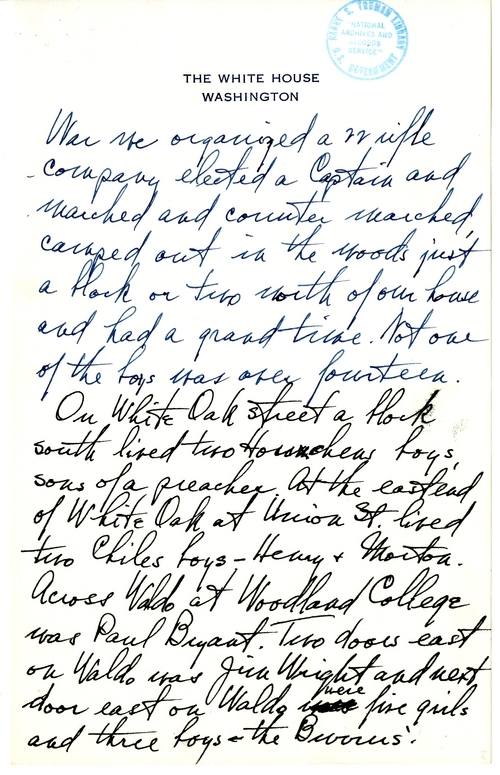 HARRY S. TRUMAN LIBRARY
"NATIONAL
ARCHIVES AND
RECORDS
SERVICE"
U.S. GOVERNMENT
THE WHITE HOUSE
WASHINGTON
War we organized a 22 rifle
company elected a Captain and
marched and counter marched,
camped out in the woods just
a block or two north of our house
and had a grand time. Not one
of the boys was over fourteen.
On White Oak street a block
south lived two boys,
sons of a preacher. At the east end
of White Oak at Union St. lived
two Chiles boys – Henry + Morton.
Across Waldo at Woodland College
was Paul Bryant. Two doors east
on Waldo was Jim Wright and next
door east on Waldo were five girls
and three boys – the Bwowns'.